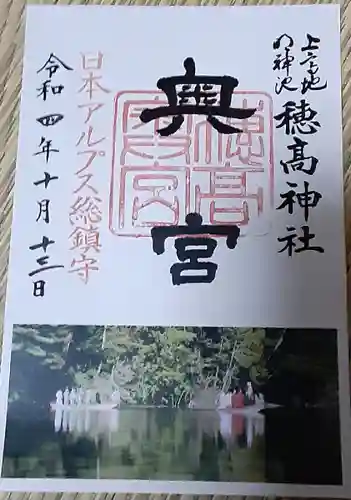 上高地
明神池
穂髙神社
奥宮
穂高
奥宮
日本アルプス総鎮守
令和四年十月十三日